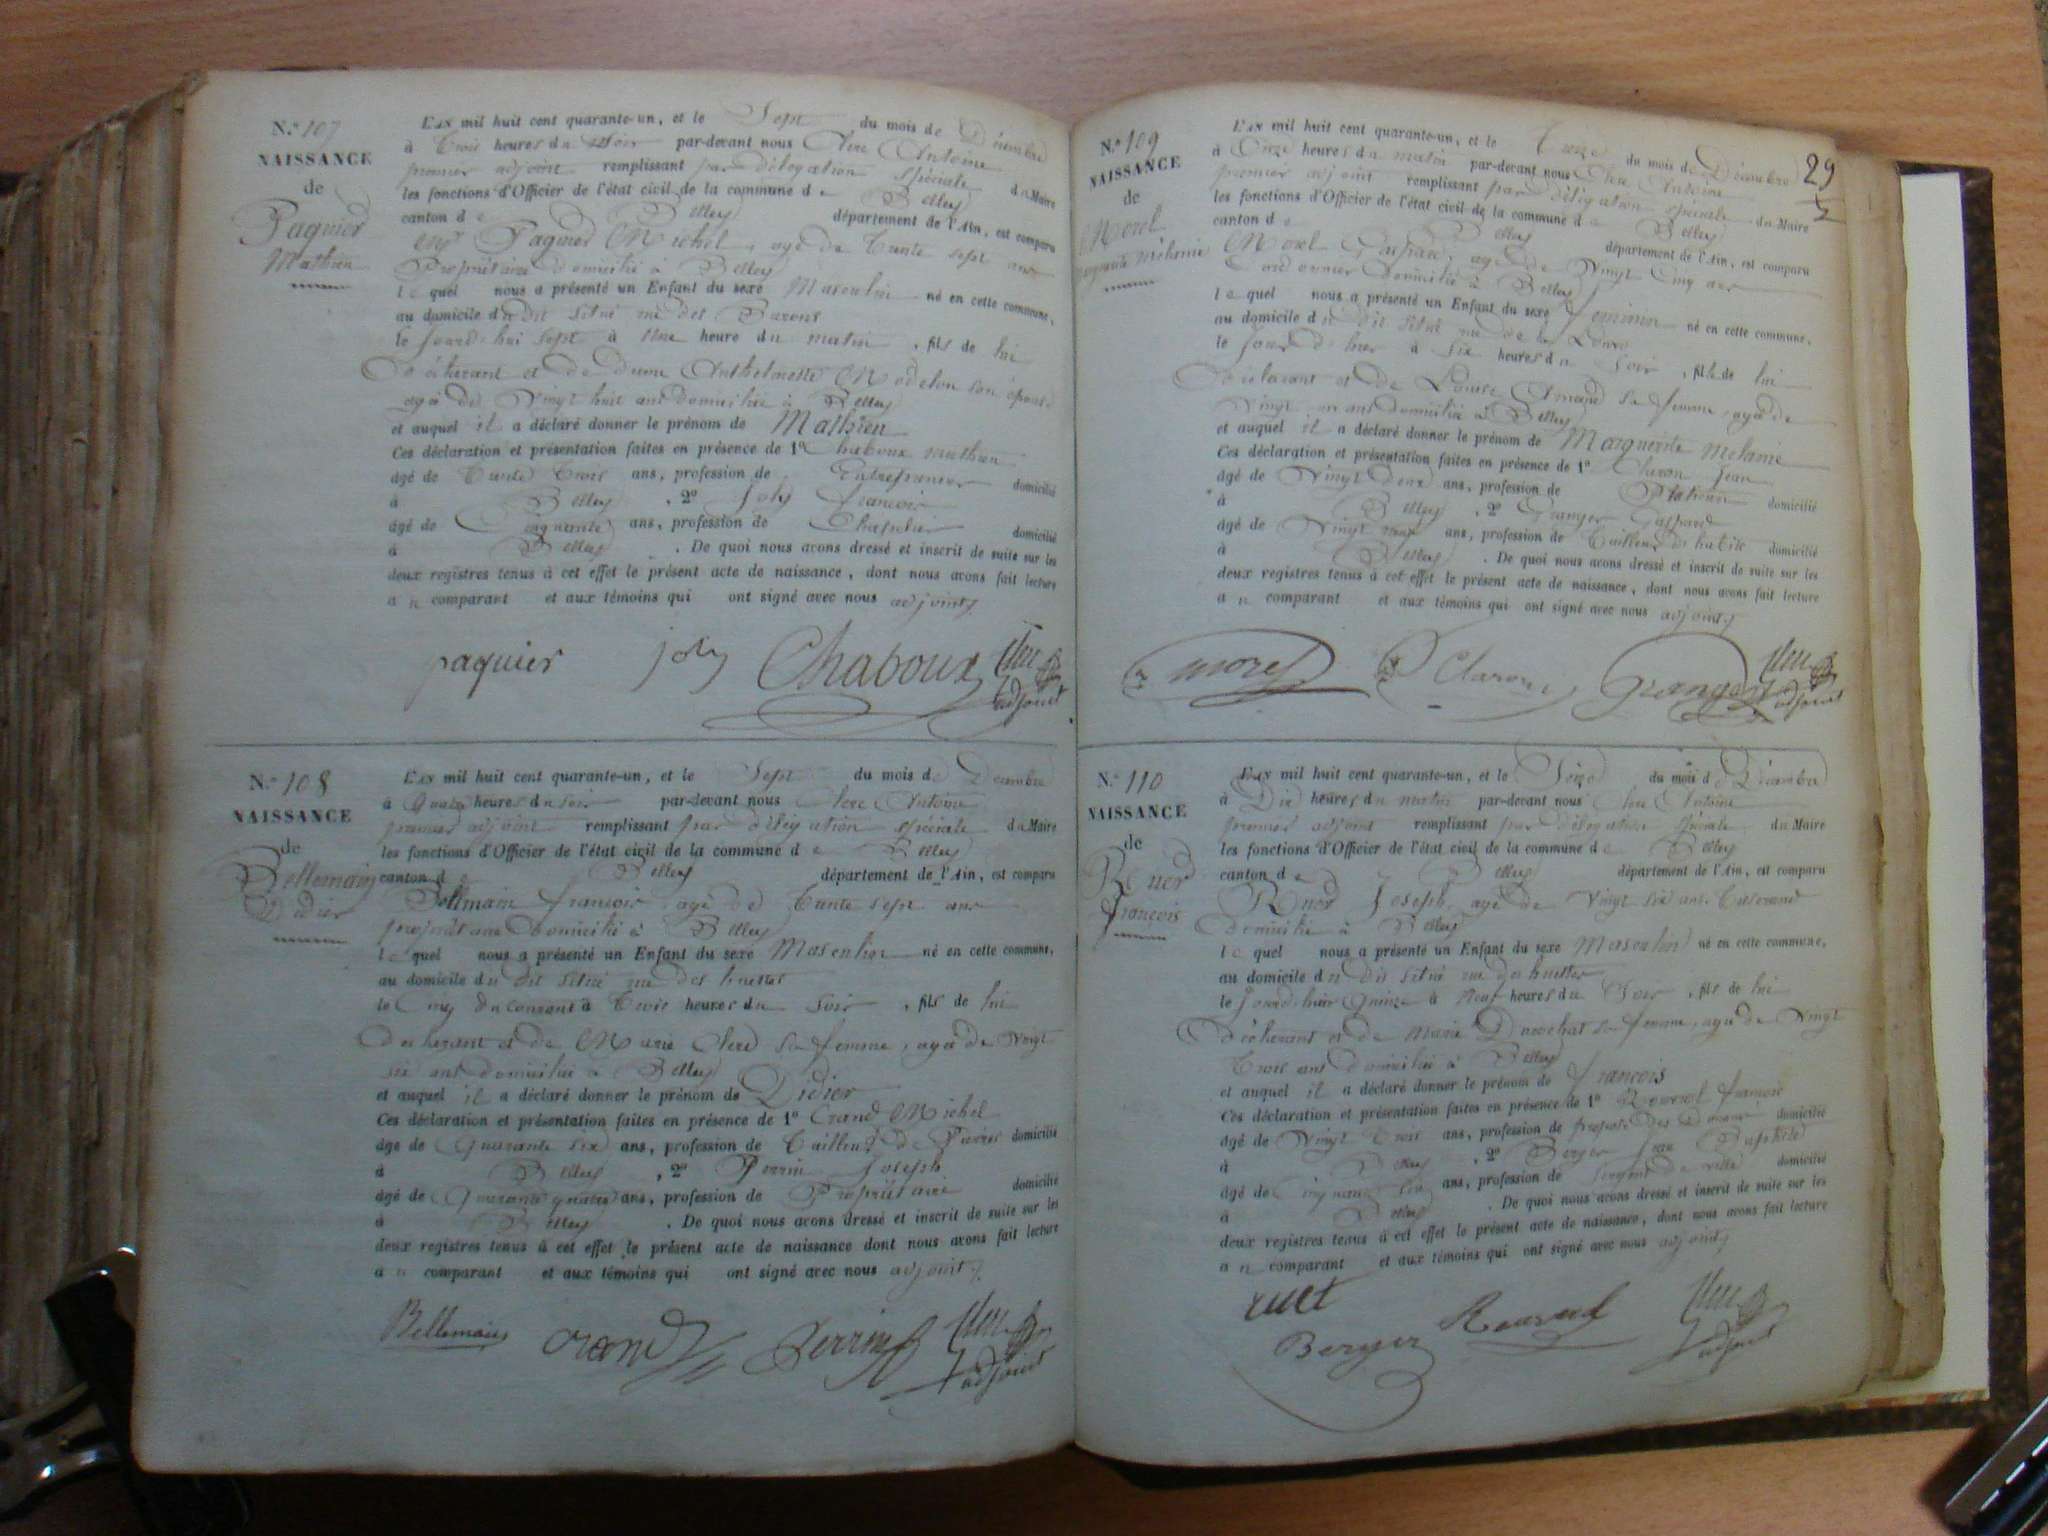 N.° 107
NAISSANCE
de
Paquier
Mathieu
L'AN mil huit cent quarante-un, et le Sept du mois de Décembre
à Trois heures du Soir par-devant nous Clerc Antoine
premier adjoint remplissant par délégation spéciale du Maire
les fonctions d'Officier de l'état civil de la commune de Belley
canton de Belley département de l'Ain, est comparu
Paquier Michel, agé de Trente sept ans
Propriétaire domicilié à Belley
lequel nous a présenté un Enfant du sexe Masculin né en cette commune,
au domicile du dit situé rue des Barons
le jourd'hui sept à Une heure du matin, fils de lui
Déclarant et de dame Anthelmette Modelon son épouse
agée de Vingt huit ans domiciliée à Belley
et auquel il a déclaré donner le prénom de Mathieu
Ces déclaration et présentation faites en présence de 1° Chaboux mathieu
âgé de Trente Trois ans, profession de Entrepreneur domicilié
à Belley, 2° Joly françois
âgé de Cinquante ans, profession de Chapelier domicilié
à Belley. De quoi nous avons dressé et inscrit de suite sur les
deux registres tenus à cet effet le présent acte de naissance, dont nous avons fait lecture
au comparant et aux témoins qui ont signé avec nous adjoint
paquier joly Chaboux adjoint
N.° 108
NAISSANCE
de
Bellemain
Didier
L'AN mil huit cent quarante-un, et le Sept du mois de Décembre
à Quatre heures du soir par-devant nous Clerc Antoine
premier adjoint remplissant par délégation spéciale du Maire
les fonctions d'Officier de l'état civil de la commune de Belley
canton de Belley département de l'Ain, est comparu
Bellemain françois, agé de Trente sept ans
propriétaire domicilié à Belley
lequel nous a présenté un Enfant du sexe Masculin né en cette commune,
au domicile du dit situé rue des
le Cinq du courant à Trois heures du soir, fils de lui
Déclarant et de Marie Clerc sa femme, agée de Vingt
six ans domiciliée à Belley
et auquel il a déclaré donner le prénom de Didier
Ces déclaration et présentation faites en présence de 1° Crand Michel
âgé de Quarante six ans, profession de Tailleur de Pierres domicilié
à Belley, 2° Perrin Joseph
âgé de Quarante quatre ans, profession de Propriétaire domicilié
à Belley. De quoi nous avons dressé et inscrit de suite sur les
deux registres tenus à cet effet le présent acte de naissance dont nous avons fait lecture
au comparant et aux témoins qui ont signé avec nous adjoint
Bellemain Crand Perrin adjoint
29
N.° 109
NAISSANCE
de
Morel
Marguerite Mélanie
L'AN mil huit cent quarante-un, et le Treize du mois de Décembre
à Onze heures du matin par-devant nous Clerc Antoine
premier adjoint remplissant par délégation spéciale du Maire
les fonctions d'Officier de l'état civil de la commune de Belley
canton de Belley département de l'Ain, est comparu
Morel Gaspard, agé de Vingt Cinq ans
Cordonnier domicilié à Belley
lequel nous a présenté un Enfant du sexe féminin né en cette commune,
au domicile du dit situé rue de la
le jour d'hier à six heures du Soir, fille de lui
Déclarant et de Louise sa femme, agée de
Vingt un ans domiciliée à Belley
et auquel il a déclaré donner le prénom de Marguerite Melanie
Ces déclaration et présentation faites en présence de 1° Claron Jean
âgé de Vingt Deux ans, profession de Platrier domicilié
à Belley, 2° Granger Gaspard
âgé de Vingt ans, profession de Tailleur d'habits domicilié
à Belley. De quoi nous avons dressé et inscrit de suite sur les
deux registres tenus à cet effet le présent acte de naissance, dont nous avons fait lecture
au comparant et aux témoins qui ont signé avec nous adjoint
morel Claron Granger adjoint
N.° 110
NAISSANCE
de
Ruet
françois
L'AN mil huit cent quarante-un, et le Seize du mois de Décembre
à Dix heures du matin par-devant nous Clerc Antoine
premier adjoint remplissant par délégation spéciale du Maire
les fonctions d'Officier de l'état civil de la commune de Belley
canton de Belley département de l'Ain, est comparu
Ruet Joseph, agé de Vingt six ans, Tisserand
domicilié à Belley
lequel nous a présenté un Enfant du sexe Masculin né en cette commune,
au domicile du dit situé rue des
le jourd'hier Quinze à Neuf heures du Soir, fils de lui
Déclarant et de Marie sa femme, agée de Vingt
Trois ans domiciliée à Belley
et auquel il a déclaré donner le prénom de françois
Ces déclaration et présentation faites en présence de 1° françois
âgé de Vingt Trois ans, profession de domicilié
à Belley, 2° Berger Jean Baptiste
âgé de Cinquante ans, profession de sergent de ville domicilié
à Belley. De quoi nous avons dressé et inscrit de suite sur les
deux registres tenus à cet effet le présent acte de naissance, dont nous avons fait lecture
au comparant et aux témoins qui ont signé avec nous adjoint
ruet
Berger adjoint